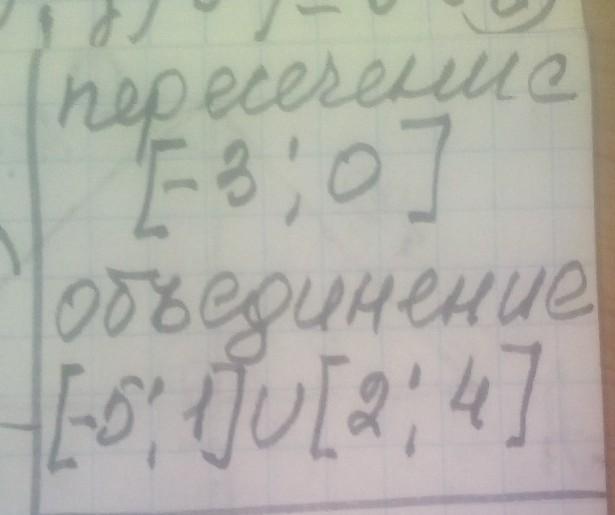 пересечение
[-3; 0]
объединение
[-5; 1]∪[2; 4]